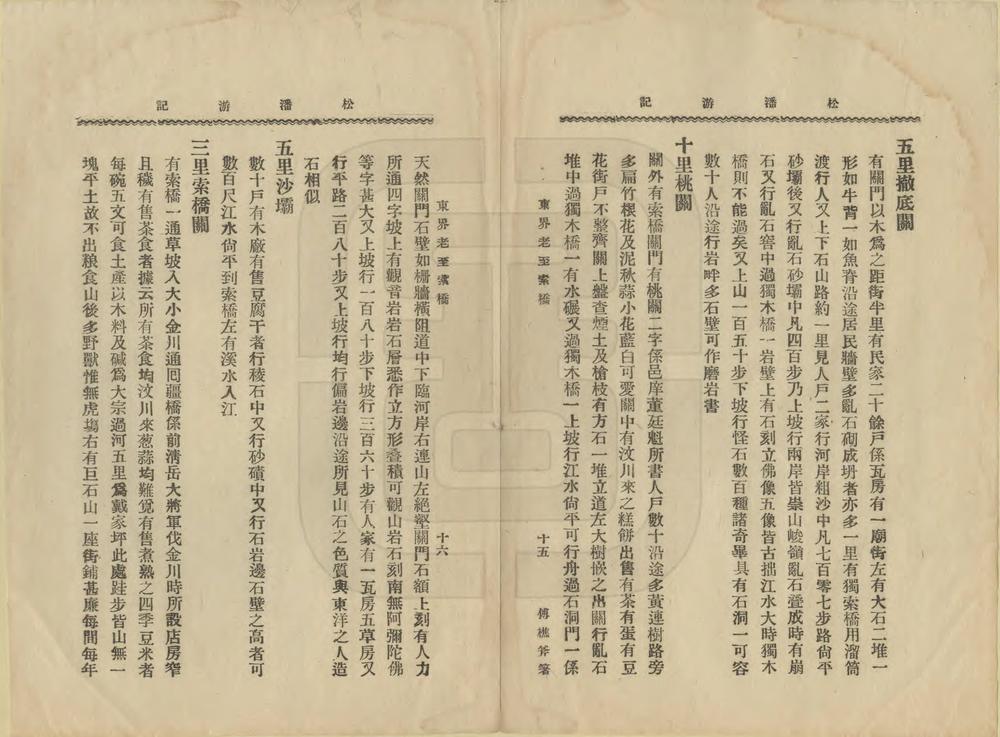 松潘游記
五里撤底關
有關門以木爲之距街半里有民家二十餘戶係瓦房有一廟街左有大石二堆一
形如牛背一如魚脊沿途居民牆壁多亂石砌成坍者亦多一里有獨索橋用溜筒
渡行人又上下石山路約一里見人戶二家行河岸粗沙中凡七百零七步路尙平
砂壩後又行亂石砂壩中凡四百步乃上坡行兩岸皆崇山峻嶺亂石疊成時有崩
石又行亂石窖中過獨木橋一岩壁上有石刻立佛像五像皆古拙江水大時獨木
橋則不能過矣又上山一百五十步下坡行怪石數百種諸奇畢具有石洞一可容
數十人沿途行岩畔多石壁可作磨岩書
十里桃關
關外有索橋關門有桃關二字係邑庠董廷魁所書人戶數十沿途多黃連樹路旁
多扁竹根花及泥秋蒜小花藍白可愛關中有汶川來之糕餅出售有茶有蛋有豆
花街戶不整齊關上盤查煙土及槍枝有方石一堆立道左大樹嵌之出關行亂石
堆中過獨木橋一有水碾又過獨木橋一上坡行江水尙平可行舟過石洞門一係
東界老至索橋
十五
傅樵斧著
松潘游記
東界老至索橋
十六
天然關門石壁如柵牆橫阻道中下臨河岸右連山左絕壑關門石額上刻有人力
所通四字坡上有觀音岩岩石層悉作立方形叠積可觀山岩石刻南無阿彌陀佛
等字甚大又上坡行一百八十步下坡行三百六十步有人家有一瓦房五草房又
行平路二百八十步又上坡行均行偏岩邊沿途所見山石之色質與東洋之人造
石相似
五里沙壩
數十戶有木廠有售豆腐干者行稜石中又行砂磧中又行石岩邊石壁之高者可
數百尺江水尙平到索橋左有溪水入江
三里索橋關
有索橋一通草坡入大小金川通囘疆橋係前淸岳大將軍伐金川時所設店房窄
且穢有售茶食者據云所有茶食均汶川來葱蒜均難覓有售煮熟之四季豆米者
每碗五文可食土產以木料及碱爲大宗過河五里爲戴家坪此處跬步皆山無一
塊平土故不出粮食山後多野獸惟無虎塲右有巨石山一座街鋪甚廉每間每年